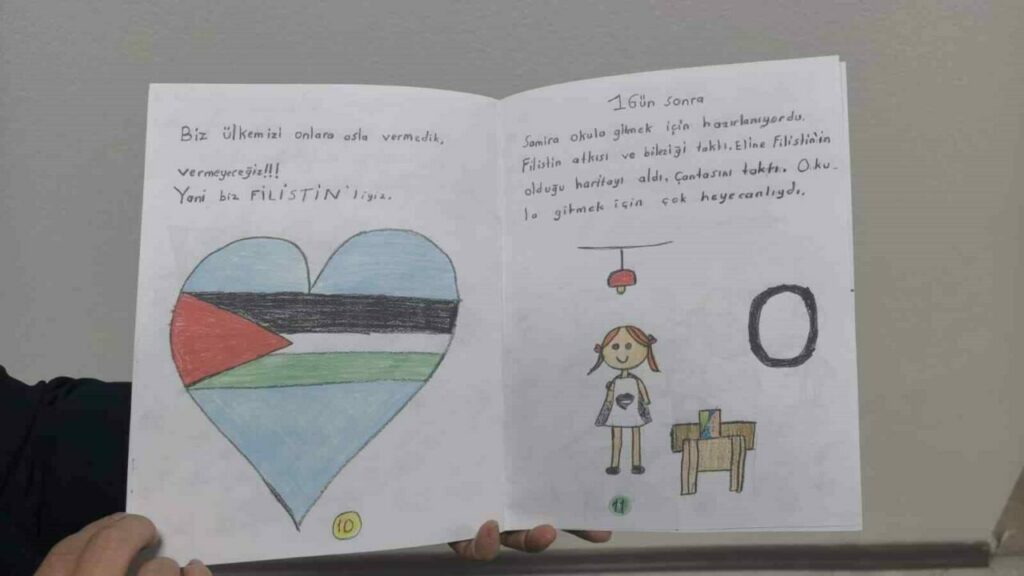 Biz ülkemizi onlara asla vermedik,
vermeyeceğiz!!!
Yani biz FİLİSTİN'liyiz.
10
1 Gün sonra
Samira okula gitmek için hazırlanıyordu.
Filistin atkısı ve bileziği taktı. Eline Filistin'in
olduğu haritayı aldı. Çantasını taktı. Oku-
la gitmek için çok heyecanlıydı.
11